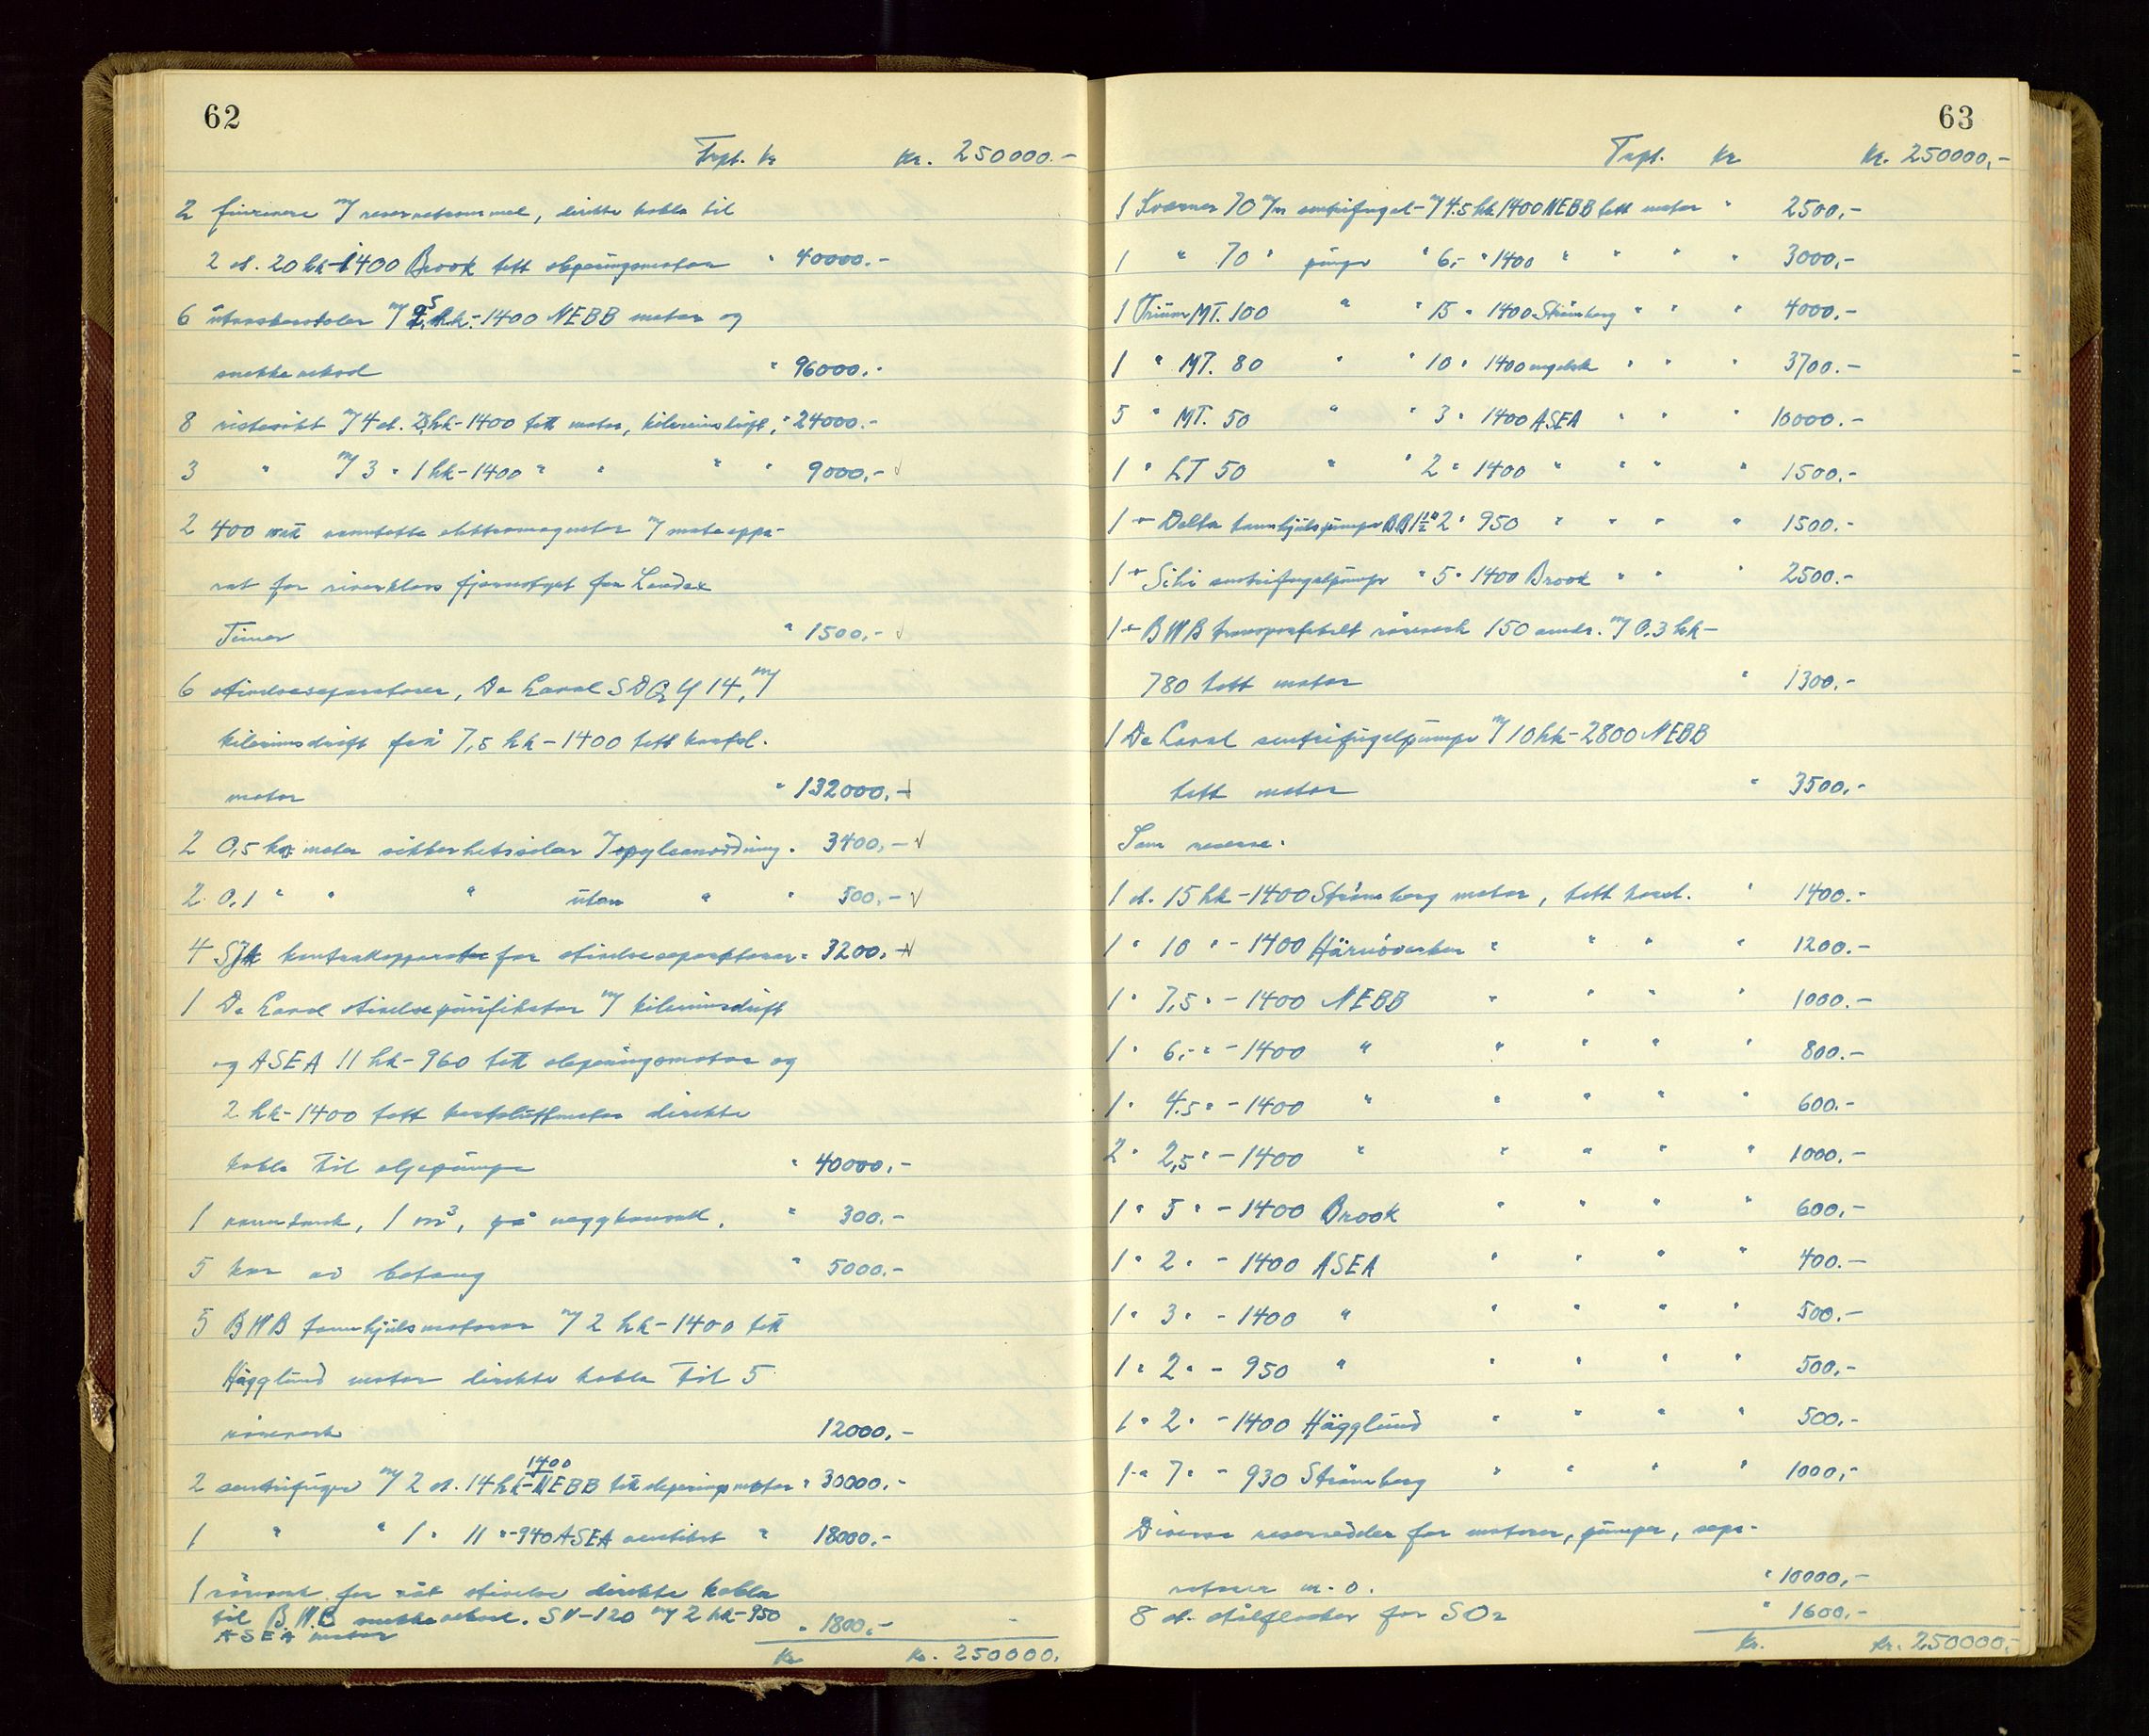 62
Trpt. kr kr. 250000.-
2 finrivere m/ reservetrommel, direkte kobla til
2 st. 20 hk-1400 Brook tett sleperingsmotor " 40000.-
6 m/ 2,5 hk.-1400 NEBB motor og
snekkeveksel " 96000.-
8 ristesikt m/ 4 st. hk-1400 tett motor, kilereimsdrift, " 24000.-
3 " m/ 3 " 1 hk-1400 " " " " 9000,-
2 400 watt vanntette elektromagneter m/ mateappa-
rat for fjernstyrt fra Landex
Timer " 1500,-
6 stivelseseparatorer, De Laval SDQY 14, m/
kilereimsdrift frå 7,5 hk-1400 tett kortsl.
motor " 132000,-
2 0,5 kg meter m/ spyleanordning. 3400,-
2 0,1 " " " utan " " 500,-
4 kontrollapparater for stivelseseparatorer " 3200,-
1 De Laval stivelsepurifikator m/ kilereimsdrift
og ASEA 11 hk-960 tett sleperingsmotor og
2 hk-1400 tett kortsluttmotor direkte
kobla til oljepumpe " 40000,-
1 vanntank, 1 m³, på veggkonsoll. " 300.-
5 kar av betong " 5000.-
5 BWB tannhjulsmotorer m/ 2 hk-1400 tett
Hägglund motor direkte kobla til 5
røreverk 12000,-
2 sentrifuger m/ 2 st. 14 hk-1400 NEBB tett sleperingsmotor " 30000,-
1 " " 1 " 11 "-940 ASEA ventilert " 18000.-
1 røreverk for rå stivelse direkte kobla
til B.W.B snekkeveksel. SV-120 m/ 2 hk-950
ASEA motor " 1800,-
Kr kr. 250000.
63
Trpt. kr kr. 250000,-
1 Kværner 70 m/m sentrifugal- m/ 4.5 hk 1400 NEBB tett motor " 2500,-
1 " 70 " pumpe " 6,- " 1400 " " " " 3000,-
1 Trium MT. 100 " " 15 " 1400 Strömberg " " " 4000,-
1 " MT. 80 " " 10 " 1400 engelsk " " " 3700.-
5 " MT. 50 " " 3 " 1400 ASEA " " " 10000.-
1 " LT 50 " " 2 " 1400 " " " " 1500.-
1 Delta tannhjulspumpe BB 1½" 2 " 950 " " " " 1500.-
1 Sihi sentrifugalpumpe " 5 " 1400 Brook " " " 2500.-
1 BWB transportabelt røreverk 150 omdr. m/ 0.3 hk-
780 tett motor " 1300.-
1 De Laval sentrifugalpumpe m/ 10 hk-2800 NEBB
tett motor " 3500,-
Som reserve.
1 st. 15 hk-1400 Strömberg motor, tett kortsl. " 1400.-
1 " 10 " -1400 Härnöverken " " " " 1200.-
1 " 7,5 " -1400 NEBB " " " " 1000.-
1 " 6,- " -1400 " " " " " 800.-
1 " 4.5 " -1400 " " " " " 600.-
2 " 2,5 " -1400 " " " " " 1000.-
1 " 5 " -1400 Brook " " " " 600,-
1 " 2 " -1400 ASEA " " " " 400.-
1 " 3 " -1400 " " " " " 500.-
1 " 2 " -950 " " " " " 500,-
1 " 2 " -1400 Hägglund " " " " 500.-
1 " 7 " -930 Strömberg " " " " 1000,-
Diverse reservedeler for motorer, pumper, sepa-
ratorer m. o. " 10000,-
8 st. stålflasker for SO2 " 1600,-
Kr. kr. 250000.-